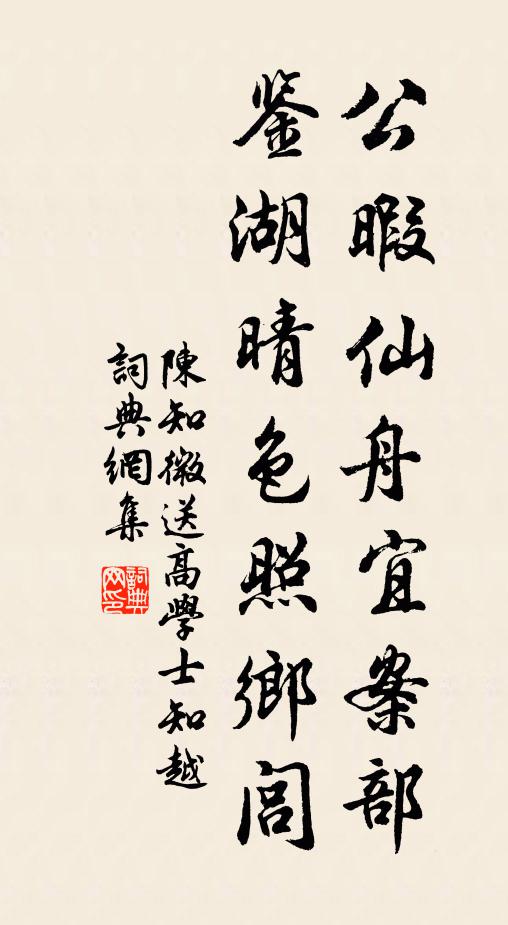 公暇仙舟宜案部
鉴湖晴色照鄉閭
陳知微送高學士知越
詞典網集
詞典網印